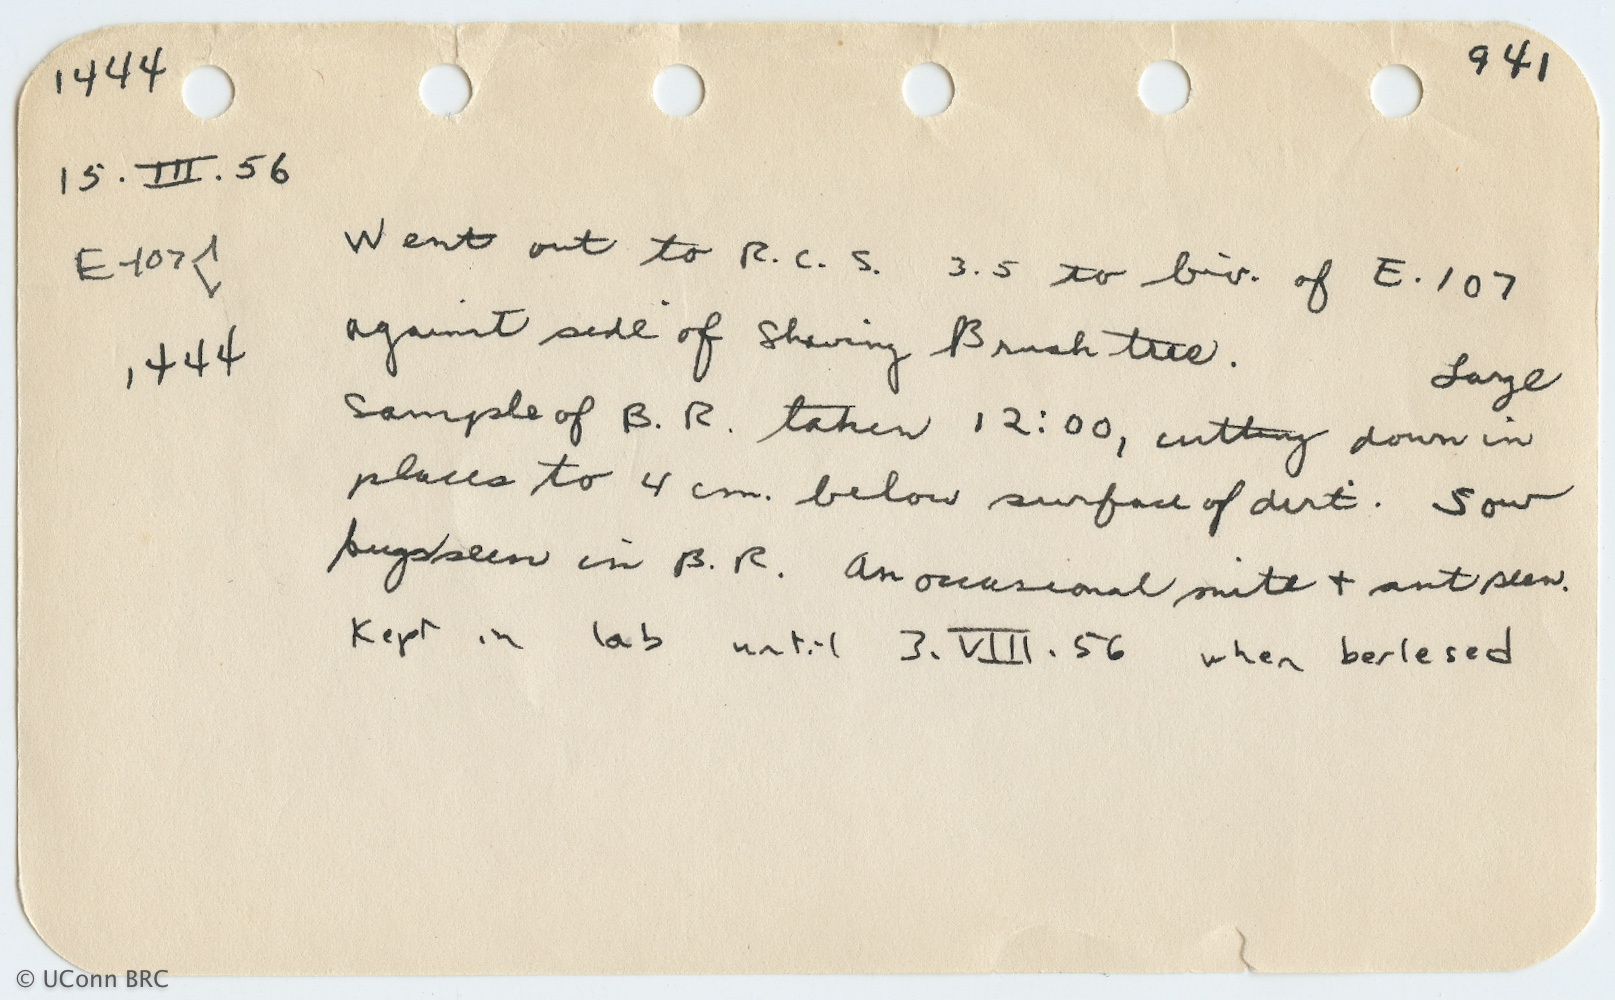 1444 941
15.III.56
E-107 Went out to R.C.S. 3.5 to biv. of E.107
against side of Shaving Brush tree. Large
1444
sample of B.R. taken 12:00, cutting down in
places to 4 cm. below surface of dirt. Sow
bugs seen in B.R. An occasional mite + ant seen.
Kept in lab until 3.VIII.56 when berlesed
© UConn BRC